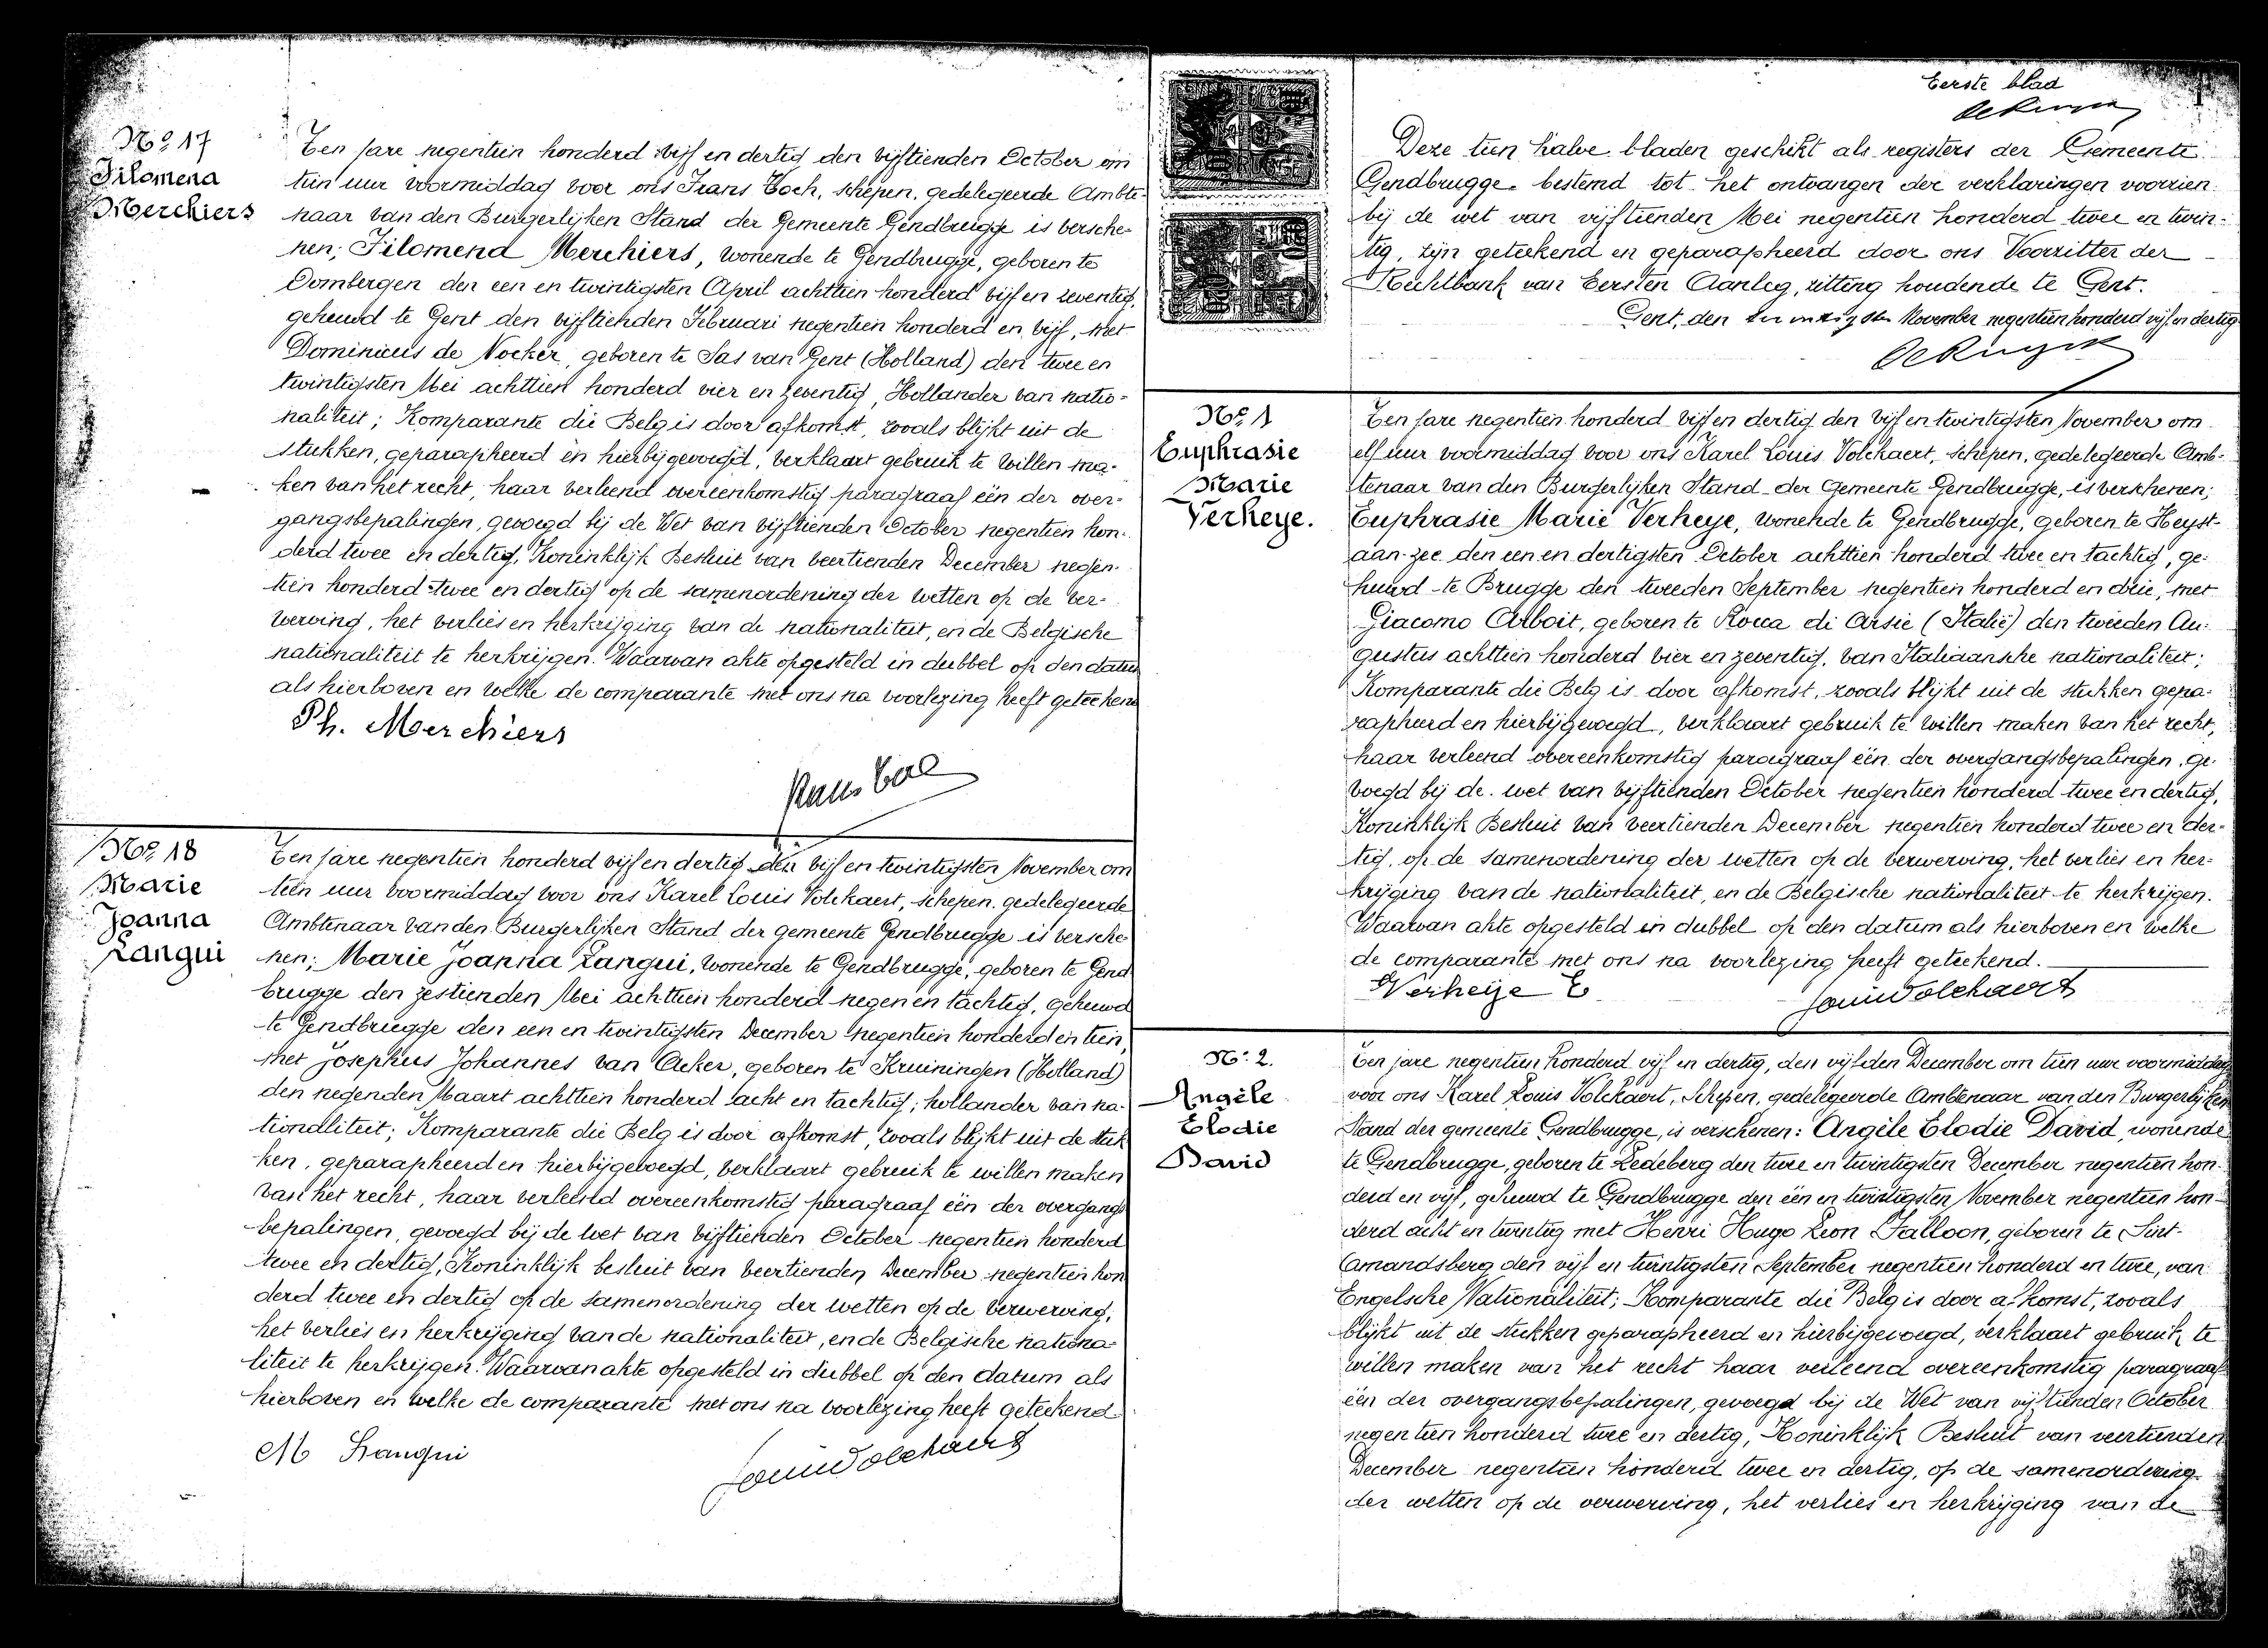 No 17
Filomena
Merchiers
Ten jare negentien honderd vijf en dertig den vijftienden October om
tien uur voormiddag voor ons Frans Toch, schepen, gedelegeerde Ambte-
naar van den Burgerlijken Stand der Gemeente Gendbrugge is versche-
nen; Filomena Merchiers, wonende te Gendbrugge, geboren te
Dombergen den een en twintigsten April achttien honderd vijf en zeventig,
gehuwd te Gent den vijftienden Februari negentien honderd en vijf, met
Dominicus de Nocker, geboren te Sas van Gent (Holland) den twee en
twintigsten Mei achttien honderd vier en zeventig, Hollander van natio-
naliteit; Komparante die Belg is door afkomst, zooals blijkt uit de
stukken, geparapheerd en hierbijgevoegd, verklaart gebruik te willen ma-
ken van het recht, haar verleend overeenkomstig paragraaf één der over-
gangsbepalingen, gevoegd bij de Wet van vijftienden October negentien hon-
derd twee en dertig, Koninklijk Besluit van veertienden December negen-
tien honderd twee en dertig op de samenordening der wetten op de ver-
werving, het verlies en herkrijging van de nationaliteit, en de Belgische
nationaliteit te herkrijgen. Waarvan akte opgesteld in dubbel op den datum
als hierboven en welke de comparante met ons na voorlezing heeft geteekend
Ph. Merchiers
No 18
Marie
Joanna
Langui
Ten jare negentien honderd vijf en dertig den vijf en twintigsten November om
tien uur voormiddag voor ons Karel Louis Volckaert, schepen, gedelegeerde
Ambtenaar van den Burgerlijken Stand der gemeente Gendbrugge is versche
nen; Marie Joanna Langui, wonende te Gendbrugge, geboren te Gend
brugge den zestienden Mei achttien honderd negen en tachtig, gehuwd
te Gendbrugge den een en twintigsten December negentien honderd en tien,
met Josephus Johannes van Acker, geboren te Kruiningen (Holland)
den negenden Maart achttien honderd acht en tachtig; hollander van na-
tionaliteit; Komparante die Belg is door afkomst, zooals blijkt uit de stuk
ken, geparapheerd en hierbijgevoegd, verklaart gebruik te willen maken
van het recht, haar verleend overeenkomstig paragraaf één der overgangs
bepalingen, gevoegd bij de wet van vijftienden October negentien honderd
twee en dertig, Koninklijk besluit van veertienden December negentien hon
derd twee en dertig op de samenordening der wetten op de verwerving,
het verlies en herkrijging van de nationaliteit, en de Belgische nationa-
liteit te herkrijgen. Waarvan akte opgesteld in dubbel op den datum als
hierboven en welke de comparante met ons na voorlezing heeft geteekend
M Langui
Louis Volckaert
Eerste blad
Deze tien halve bladen geschikt als registers der Gemeente
Gendbrugge bestemd tot het ontvangen der verklaringen voorzien
bij de wet van vijftienden Mei negentien honderd twee en twin-
tig, zijn geteekend en geparapheerd door ons Voorzitter der
Rechtbank van Eersten Aanleg, zitting houdende te Gent.
Gent, den twintigsten November negentien honderd vijf en dertig
No 1
Euphrasie
Marie
Verheye.
Ten jare negentien honderd vijf en dertig den vijf en twintigsten November om
elf uur voormiddag voor ons Karel Louis Volckaert, schepen, gedelegeerde Amb-
tenaar van den Burgerlijken Stand der Gemeente Gendbrugge, is verschenen;
Euphrasie Marie Verheye, wonende te Gendbrugge, geboren te Heyst-
aan-zee den een en dertigsten October achttien honderd twee en tachtig, ge-
huwd te Brugge den tweeden September negentien honderd en drie, met
Giacomo Arboit, geboren te Rocca di Arsie (Italië) den tweeden Au-
gustus achttien honderd vier en zeventig, van Italiaansche nationaliteit;
Komparante die Belg is door afkomst, zooals blijkt uit de stukken gepa-
rapheerd en hierbijgevoegd, verklaart gebruik te willen maken van het recht,
haar verleend overeenkomstig paragraaf één der overgangsbepalingen, ge-
voegd bij de wet van vijftienden October negentien honderd twee en dertig,
Koninklijk Besluit van veertienden December negentien honderd twee en der-
tig, op de samenordening der wetten op de verwerving, het verlies en her-
krijging van de nationaliteit, en de Belgische nationaliteit te herkrijgen.
Waarvan akte opgesteld in dubbel op den datum als hierboven en welke
de comparante met ons na voorlezing heeft geteekend.
Verheije E
Louis Volckaert
No 2.
Angèle
Elodie
David
Ten jare negentien honderd vijf en dertig, den vijfden December om tien uur voormiddag
voor ons Karel Louis Volckaert, Schepen, gedelegeerde Ambtenaar van den Burgerlijken
Stand der gemeente Gendbrugge, is verschenen: Angèle Elodie David, wonende
te Gendbrugge, geboren te Ledeberg den twee en twintigsten December negentien hon-
derd en vijf, gehuwd te Gendbrugge den één en twintigsten November negentien hon-
derd acht en twintig met Henri Hugo Leon Falloon, geboren te Sint-
Amandsberg den vijf en twintigsten September negentien honderd en twee, van
Engelsche Nationaliteit; Komparante die Belg is door afkomst, zooals
blijkt uit de stukken geparapheerd en hierbijgevoegd, verklaart gebruik te
willen maken van het recht haar verleend overeenkomstig paragraaf
één der overgangsbepalingen, gevoegd bij de Wet van vijftienden October
negentien honderd twee en dertig, Koninklijk Besluit van veertienden
December negentien honderd twee en dertig, op de samenordening
der wetten op de verwerving, het verlies en herkrijging van de